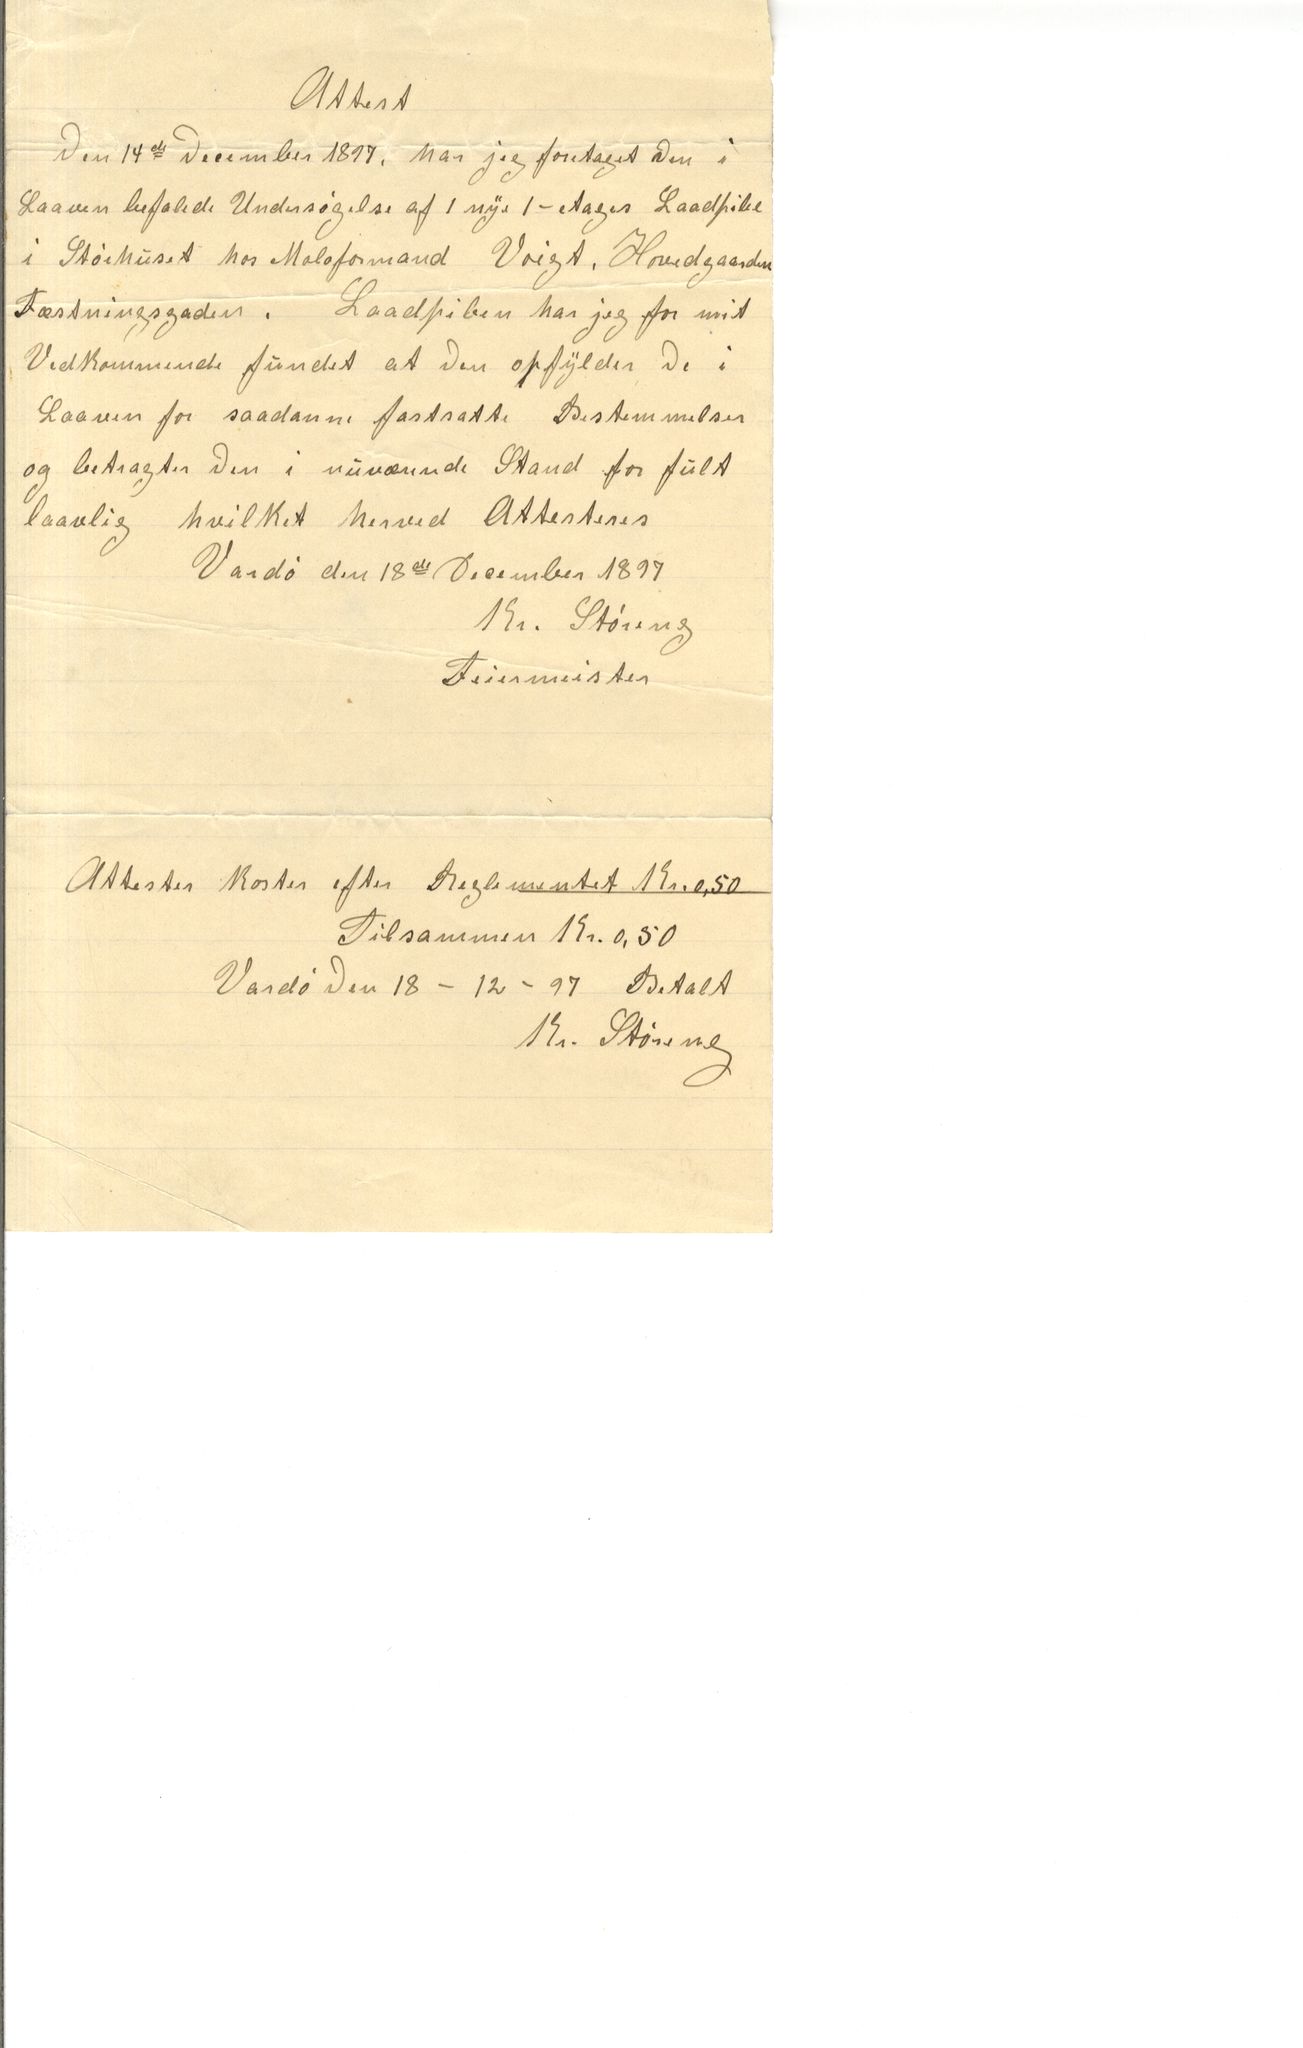 Attest
Den 14de December 1897, har jeg foretaget den i
Laaven befalede Undersøgelse af 1 nye 1-etages Laadpibe
i Størhuset hos Moloformand Voigt, Hovedgaarden
Fæstningsgaden. Laadpiben har jeg for mit
Vedkommende fundet at den opfylder de i
Laaven for saadanne fastsatte Bestemmelser
og betragter den i nuværende Stand for fult
laavlig hvilket herved Attesteres
Vardø den 18de December 1897
Kr. Støreng
Feiermeister
Attester koster efter Reglementet Kr. 0,50
Tilsammen Kr. 0,50
Vardø den 18 - 12 - 97 Betalt
Kr. Støreng